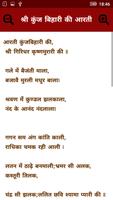 18:46
श्री कुंज बिहारी की आरती
आरती कुंजबिहारी की,
श्री गिरिधर कृष्णमुरारी की ॥
गले में बैजंती माला,
बजावै मुरली मधुर बाला।
श्रवण में कुण्डल झलकाला,
नंद के आनंद नंदलाला।
गगन सम अंग कांति काली,
राधिका चमक रही आली।
लतन में ठाढ़े बनमाली;भ्रमर सी अलक,
कस्तूरी तिलक,
चंद्र सी झलक;ललित छवि श्यामा प्यारी की ॥